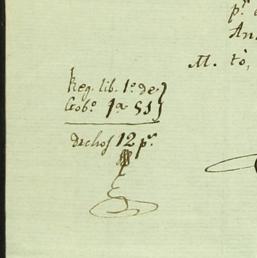 p.ˢ
An
M. tò,
Reg. lib. 1º de
Gobº. 1ª 551
dichos 12 p.ˢ